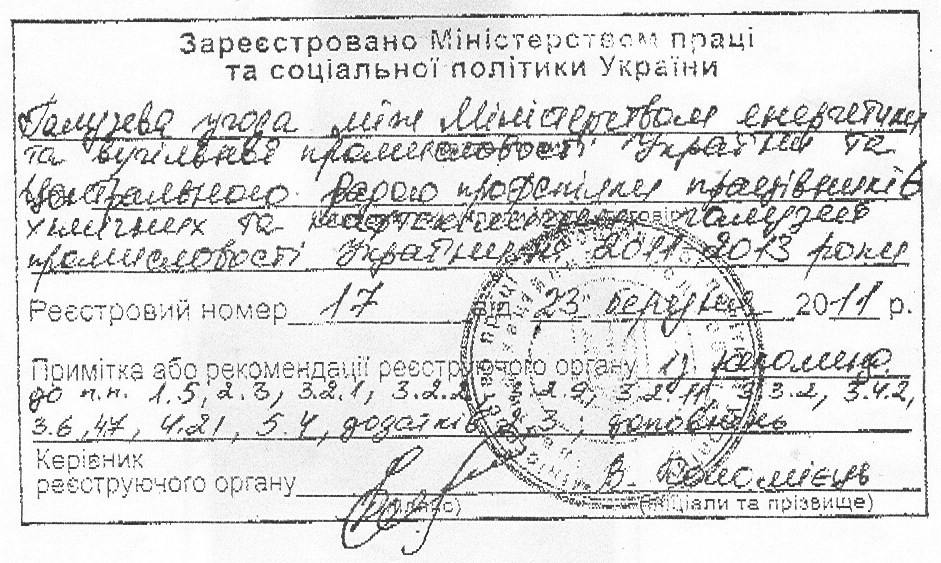 Зареєстровано Міністерством праці
та соціальної політики України
Галузева угода між Міністерством енергетики
та вугільної промисловості України та
Центральною радою профспілки працівників
хімічних та галузей
промисловості України на 2011-2013 роки
Реєстровий номер 17 від 23 березня 2011 р.
Примітка або рекомендації реєструючого органу
до п.п. 1.5, 2.3, 3.2.1, 3.2.2 2.9, 3.2.11, 3.3.2, 3.4.2,
3.6, 47, 4.21, 5.4, додатків 2.3;
Керівник
реєструючого органу В. Коломієць
(підпис) (ініціали та прізвище)